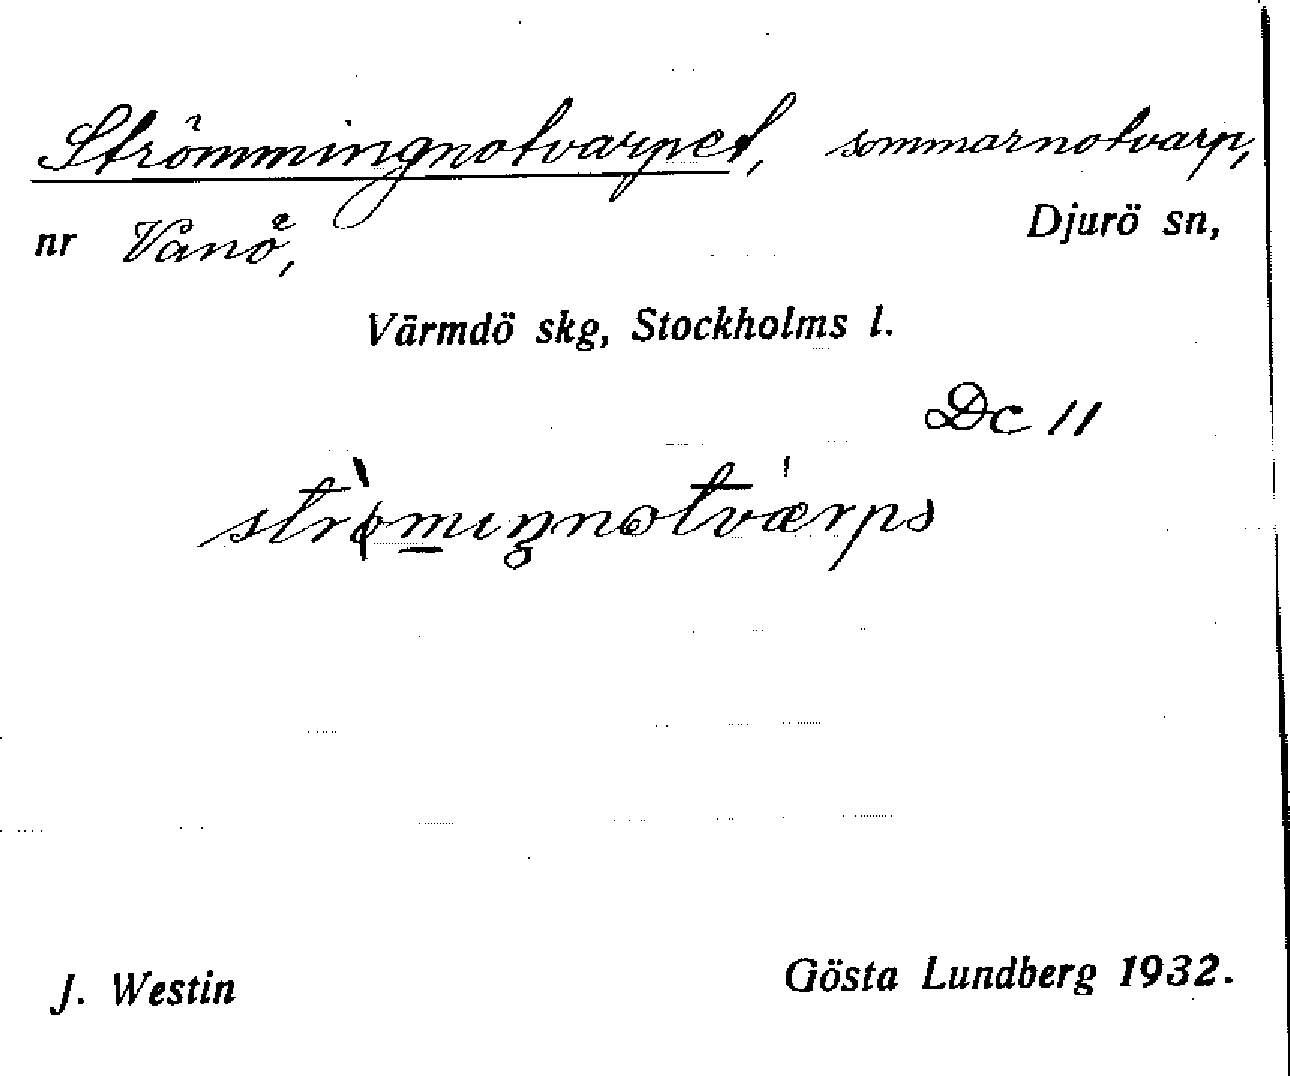 Strömmingnotvarpet, sommarnotvarp,
nr Vanö, Djurö sn,
Värmdö skg, Stockholms l.
Dc 11
J. Westin Gösta Lundberg 1932.